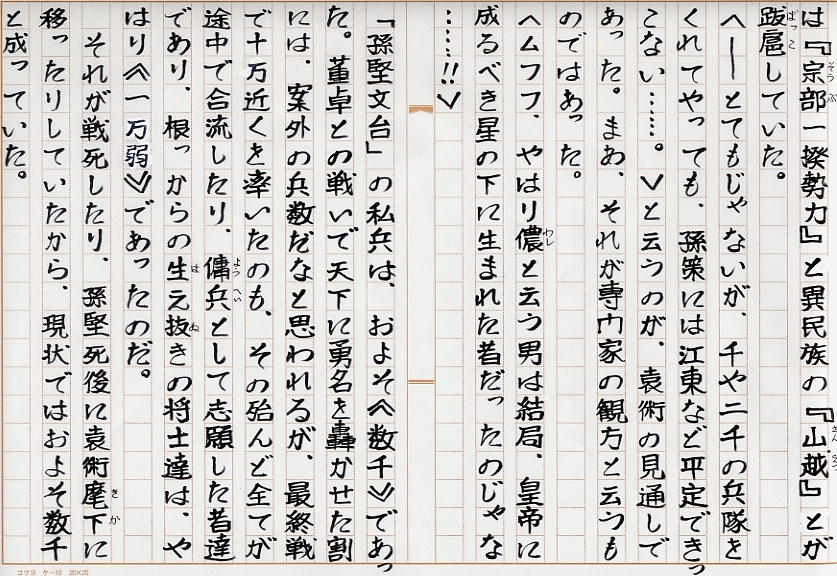 は『宗部一揆勢力』と異民族の『山越』とが
跋扈していた。
へ──とてもじゃないが、千や二千の兵隊を
くれてやっても、孫策には江東など平定できっ
こない……。〉と云うのが、袁術の見通しで
あった。まあ、それが専門家の観方と云うも
のではあった。
〈ムフフ、やはり儂と云う男は結局、皇帝に
成るべき星の下に生まれた者だったのじゃな
……!!〉
「孫堅文台」の私兵は、およそ《数千》であっ
た。董卓との戦いで天下に勇名を轟かせた割
には、案外の兵数だなと思われるが、最終戦
で十万近くを率いたのも、その殆んど全てが
途中で合流したり、傭兵として志願した者達
であり、根っからの生え抜きの将士達は、や
はり《一万弱》であったのだ。
それが戦死したり、孫堅死後に袁術麾下に
移ったりしていたから、現状ではおよそ数千
と成っていた。
コクヨ ケ-10 20×20